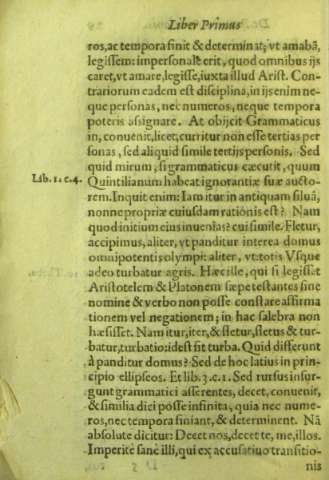 Liber Primus
ros, ac tempora finit & determinat; vt amabā,
legissem: impersonale erit, quod omnibus ijs
caret, vt amare, legisse, iuxta illud Arist. Con-
trariorum eadem est disciplina, in ijs enim ne-
que personas, nec numeros, neque tempora
poteris assignare. At obijcit Grammaticus
in, conuenit, licet, curritur non esse tertias per
sonas, sed aliquid simile tertijs personis. Sed
quid mirum, si grammaticus cæcutit, quum
Lib. 1. c. 4.
Quintilianum habeat ignorantiæ suæ aucto-
rem. Inquit enim: Iam itur in antiquam siluā,
nonne propriæ cuiusdam rationis est? Nam
quod initium eius inuenias? cui simile. Fletur,
accipimus, aliter, vt panditur interea domus
omnipotentis olympi: aliter, vt: totis Vsque
adeo turbatur agris. Hæc ille, qui si legisset
Aristotelem & Platonem sæpe testantes sine
nomine & verbo non posse constare affirma
tionem vel negationem; in hac salebra non
hæsisset. Nam itur, iter, & fletur, fletus & tur-
batur, turbatio: idest fit turba. Quid differunt
à panditur domus? Sed de hoc latius in prin-
cipio ellipseos. Et lib. 3. c. 1. Sed rursus insur-
gunt grammatici asserentes, decet, conuenit,
& similia dici posse infinita, quia nec nume-
ros, nec tempora finiant, & determinent. Nā
absolute dicitur: Decet nos, decet te, me, illos.
Imperitè sanè illi, qui ex accusatiuo transitio-
nis